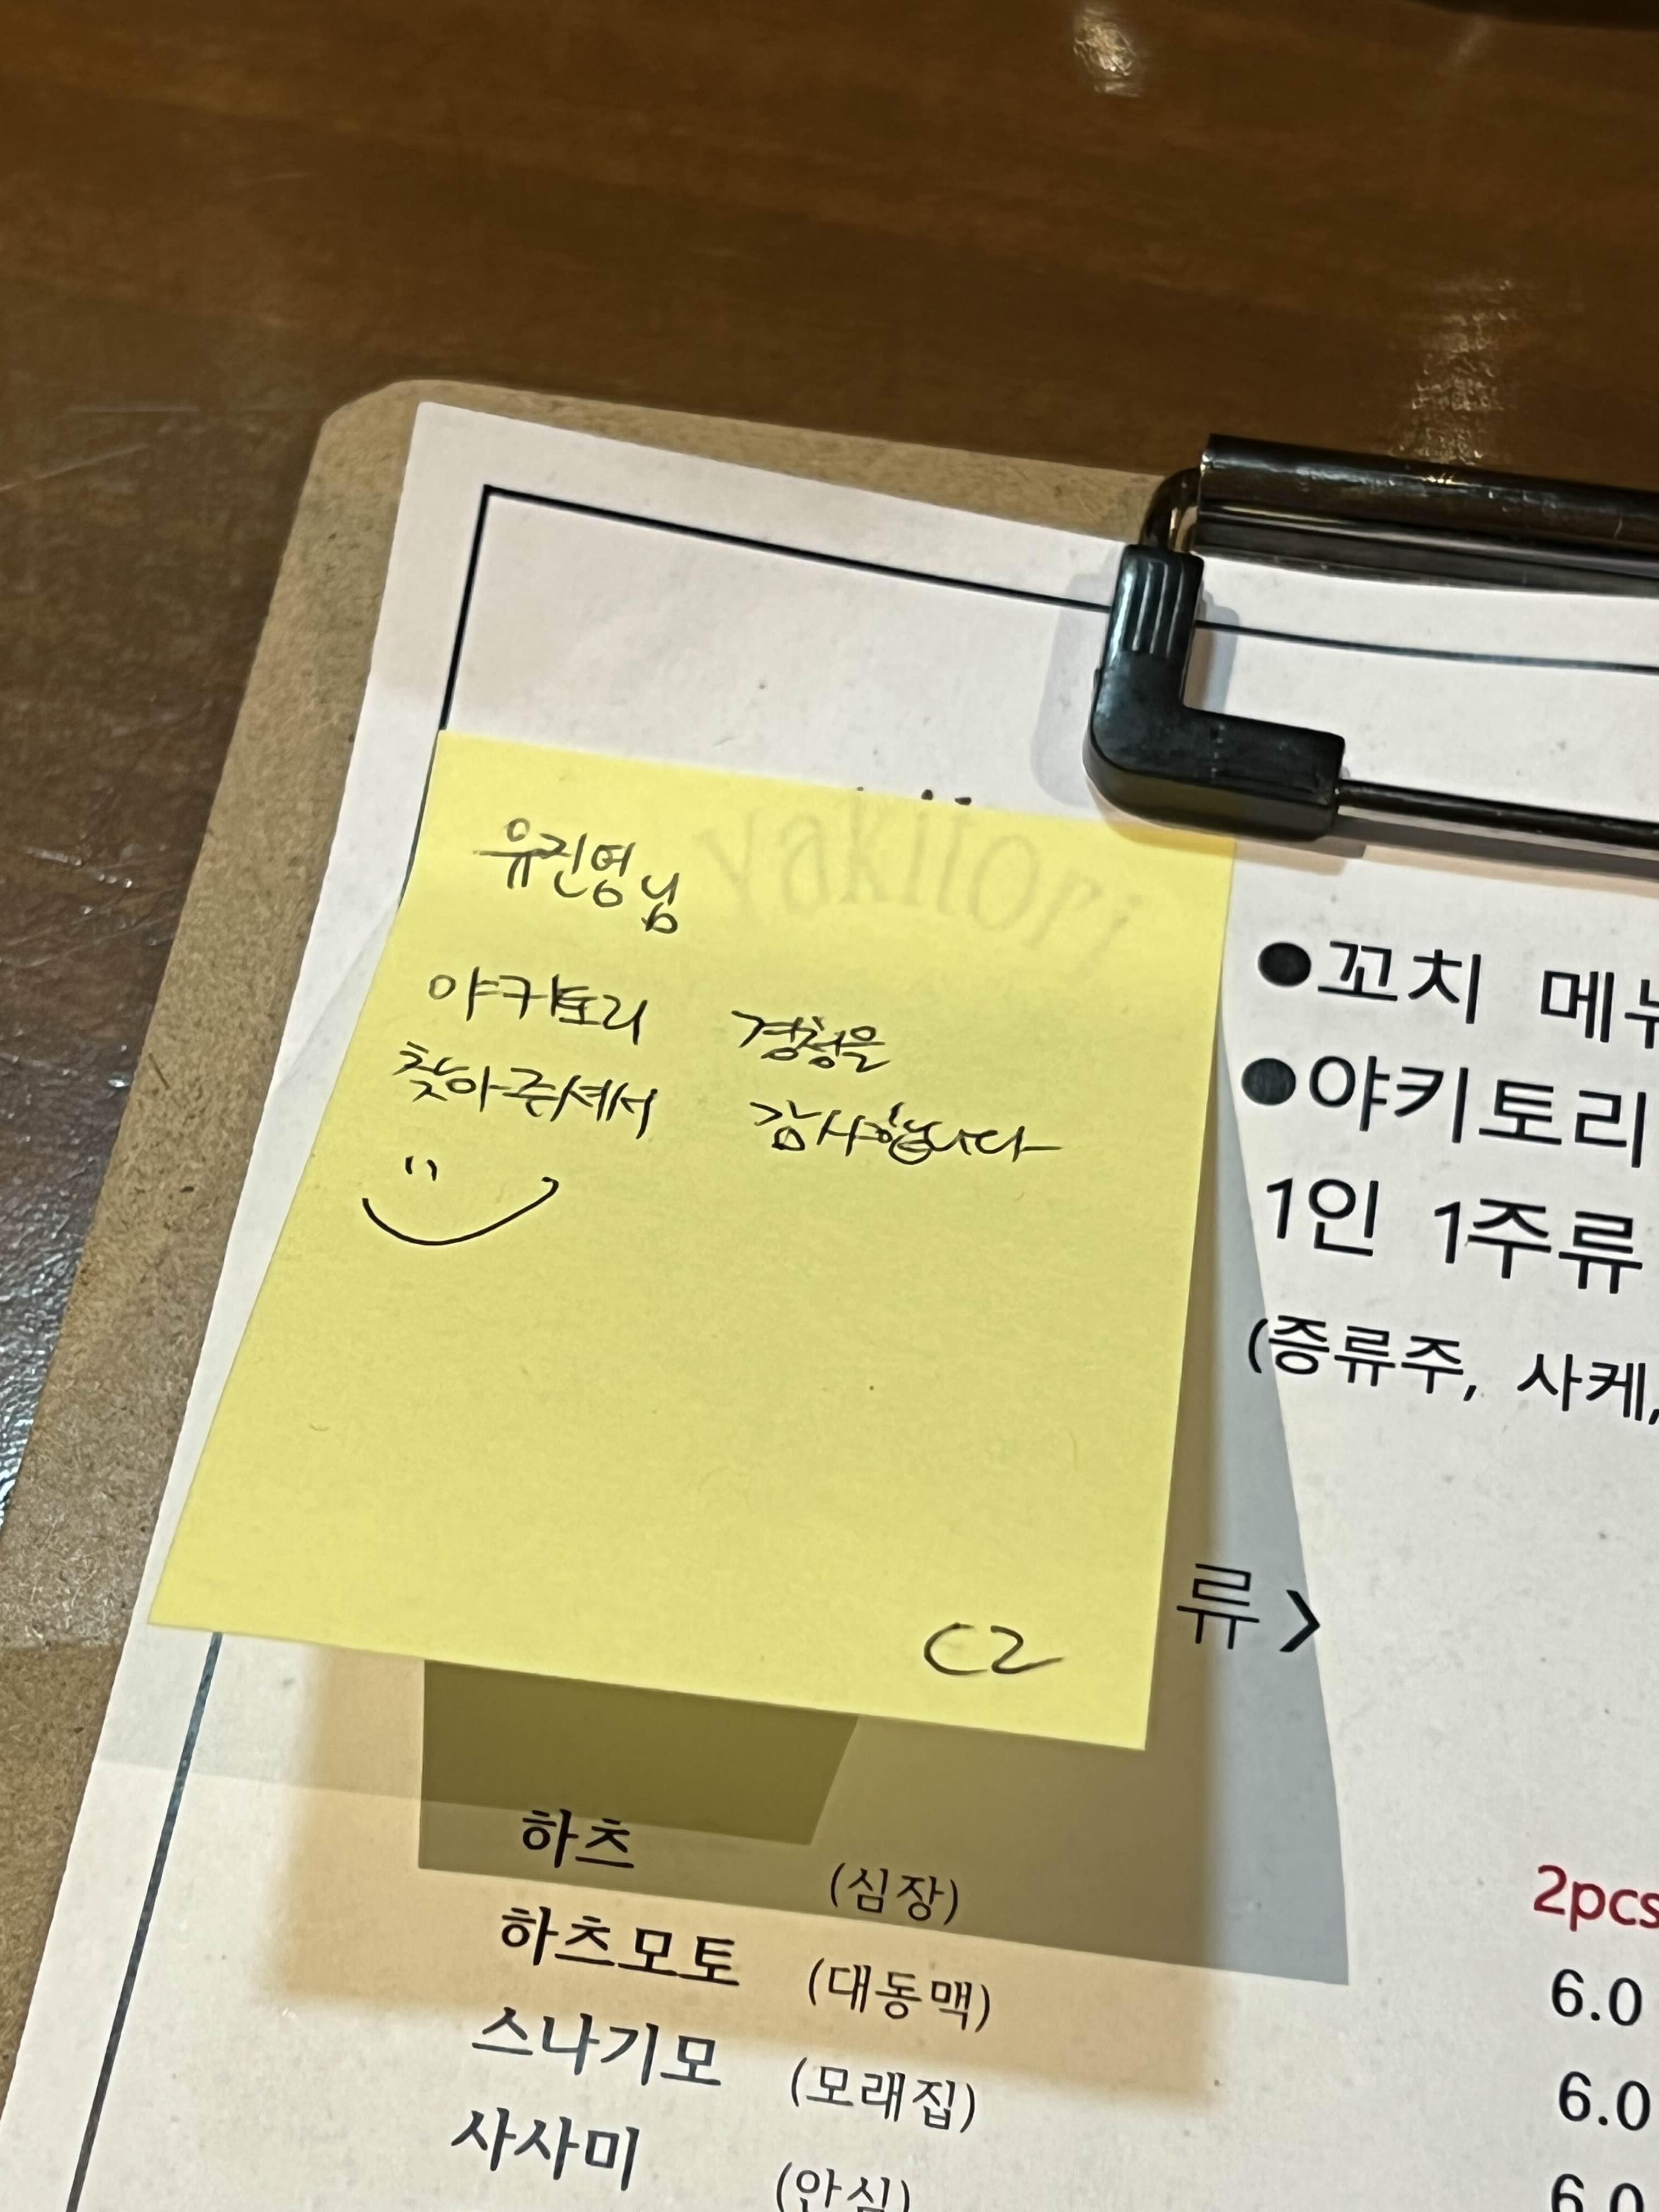 유진영님
야키토리 경청을
찾아주셔서 감사합니다
C2
yakitori
●꼬치 메뉴
●야키토리
1인 1주류
(증류주, 사케,
류>
하츠 (심장)
2pcs
하츠모토 (대동맥) 6.0
스나기모 (모래집) 6.0
사사미 (안심) 6.0